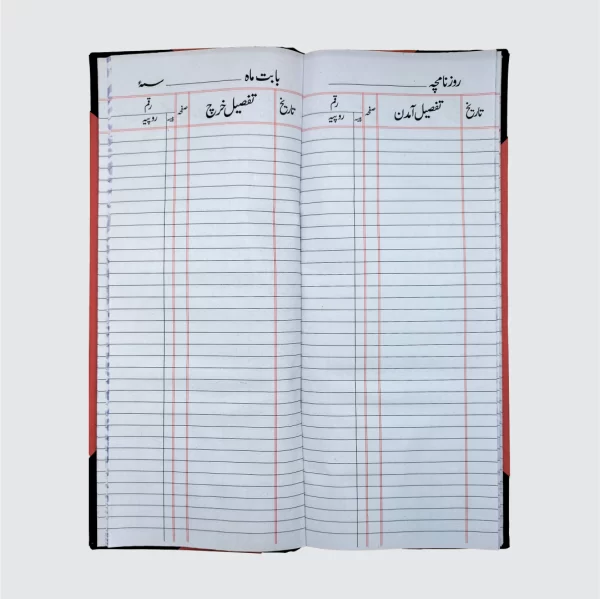 روزنامچہ ____________ بابت ماہ ____________ سنہ
تاریخ تفصیل آمدن صفحہ رقم
روپیہ
تاریخ تفصیل خرچ صفحہ رقم
روپیہ